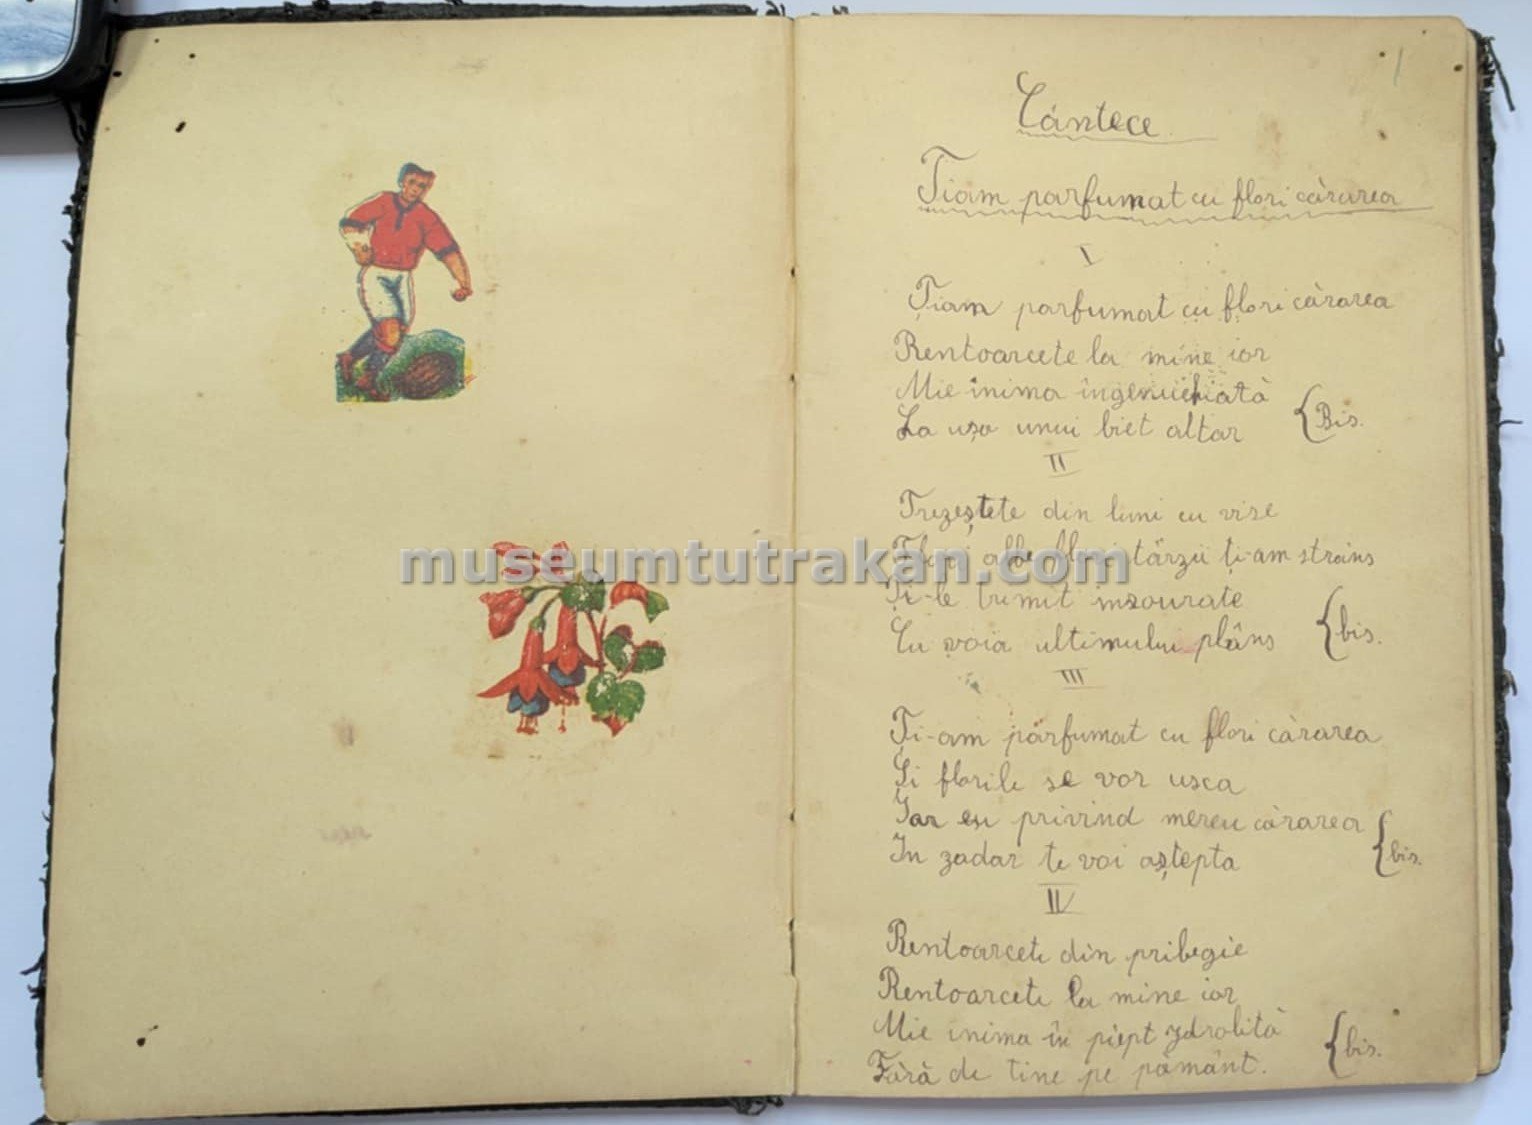 1
Cântece
Tiam parfumat cu flori cărarea
I
Țiam parfumat cu flori cărarea
Rentoarcete la mine iar
Mie inima îngenuchiată
La ușa unui biet altar {Bis.
II
Trezeștete din luni cu vise
Flori albe flori târzii ți-am strâns
Ți-le trimit insourate
Cu voia ultimului plâns {bis.
III
Ți-am parfumat cu flori cărarea
Și florile se vor usca
Iar eu privind mereu cărarea
In zadar te voi aștepta {bis.
IV
Rentoarcete din pribegie
Rentoarcete la mine iar
Mie inima în piept zdrolită
Fără de tine pe pământ. {bis.
museumtutrakan.com